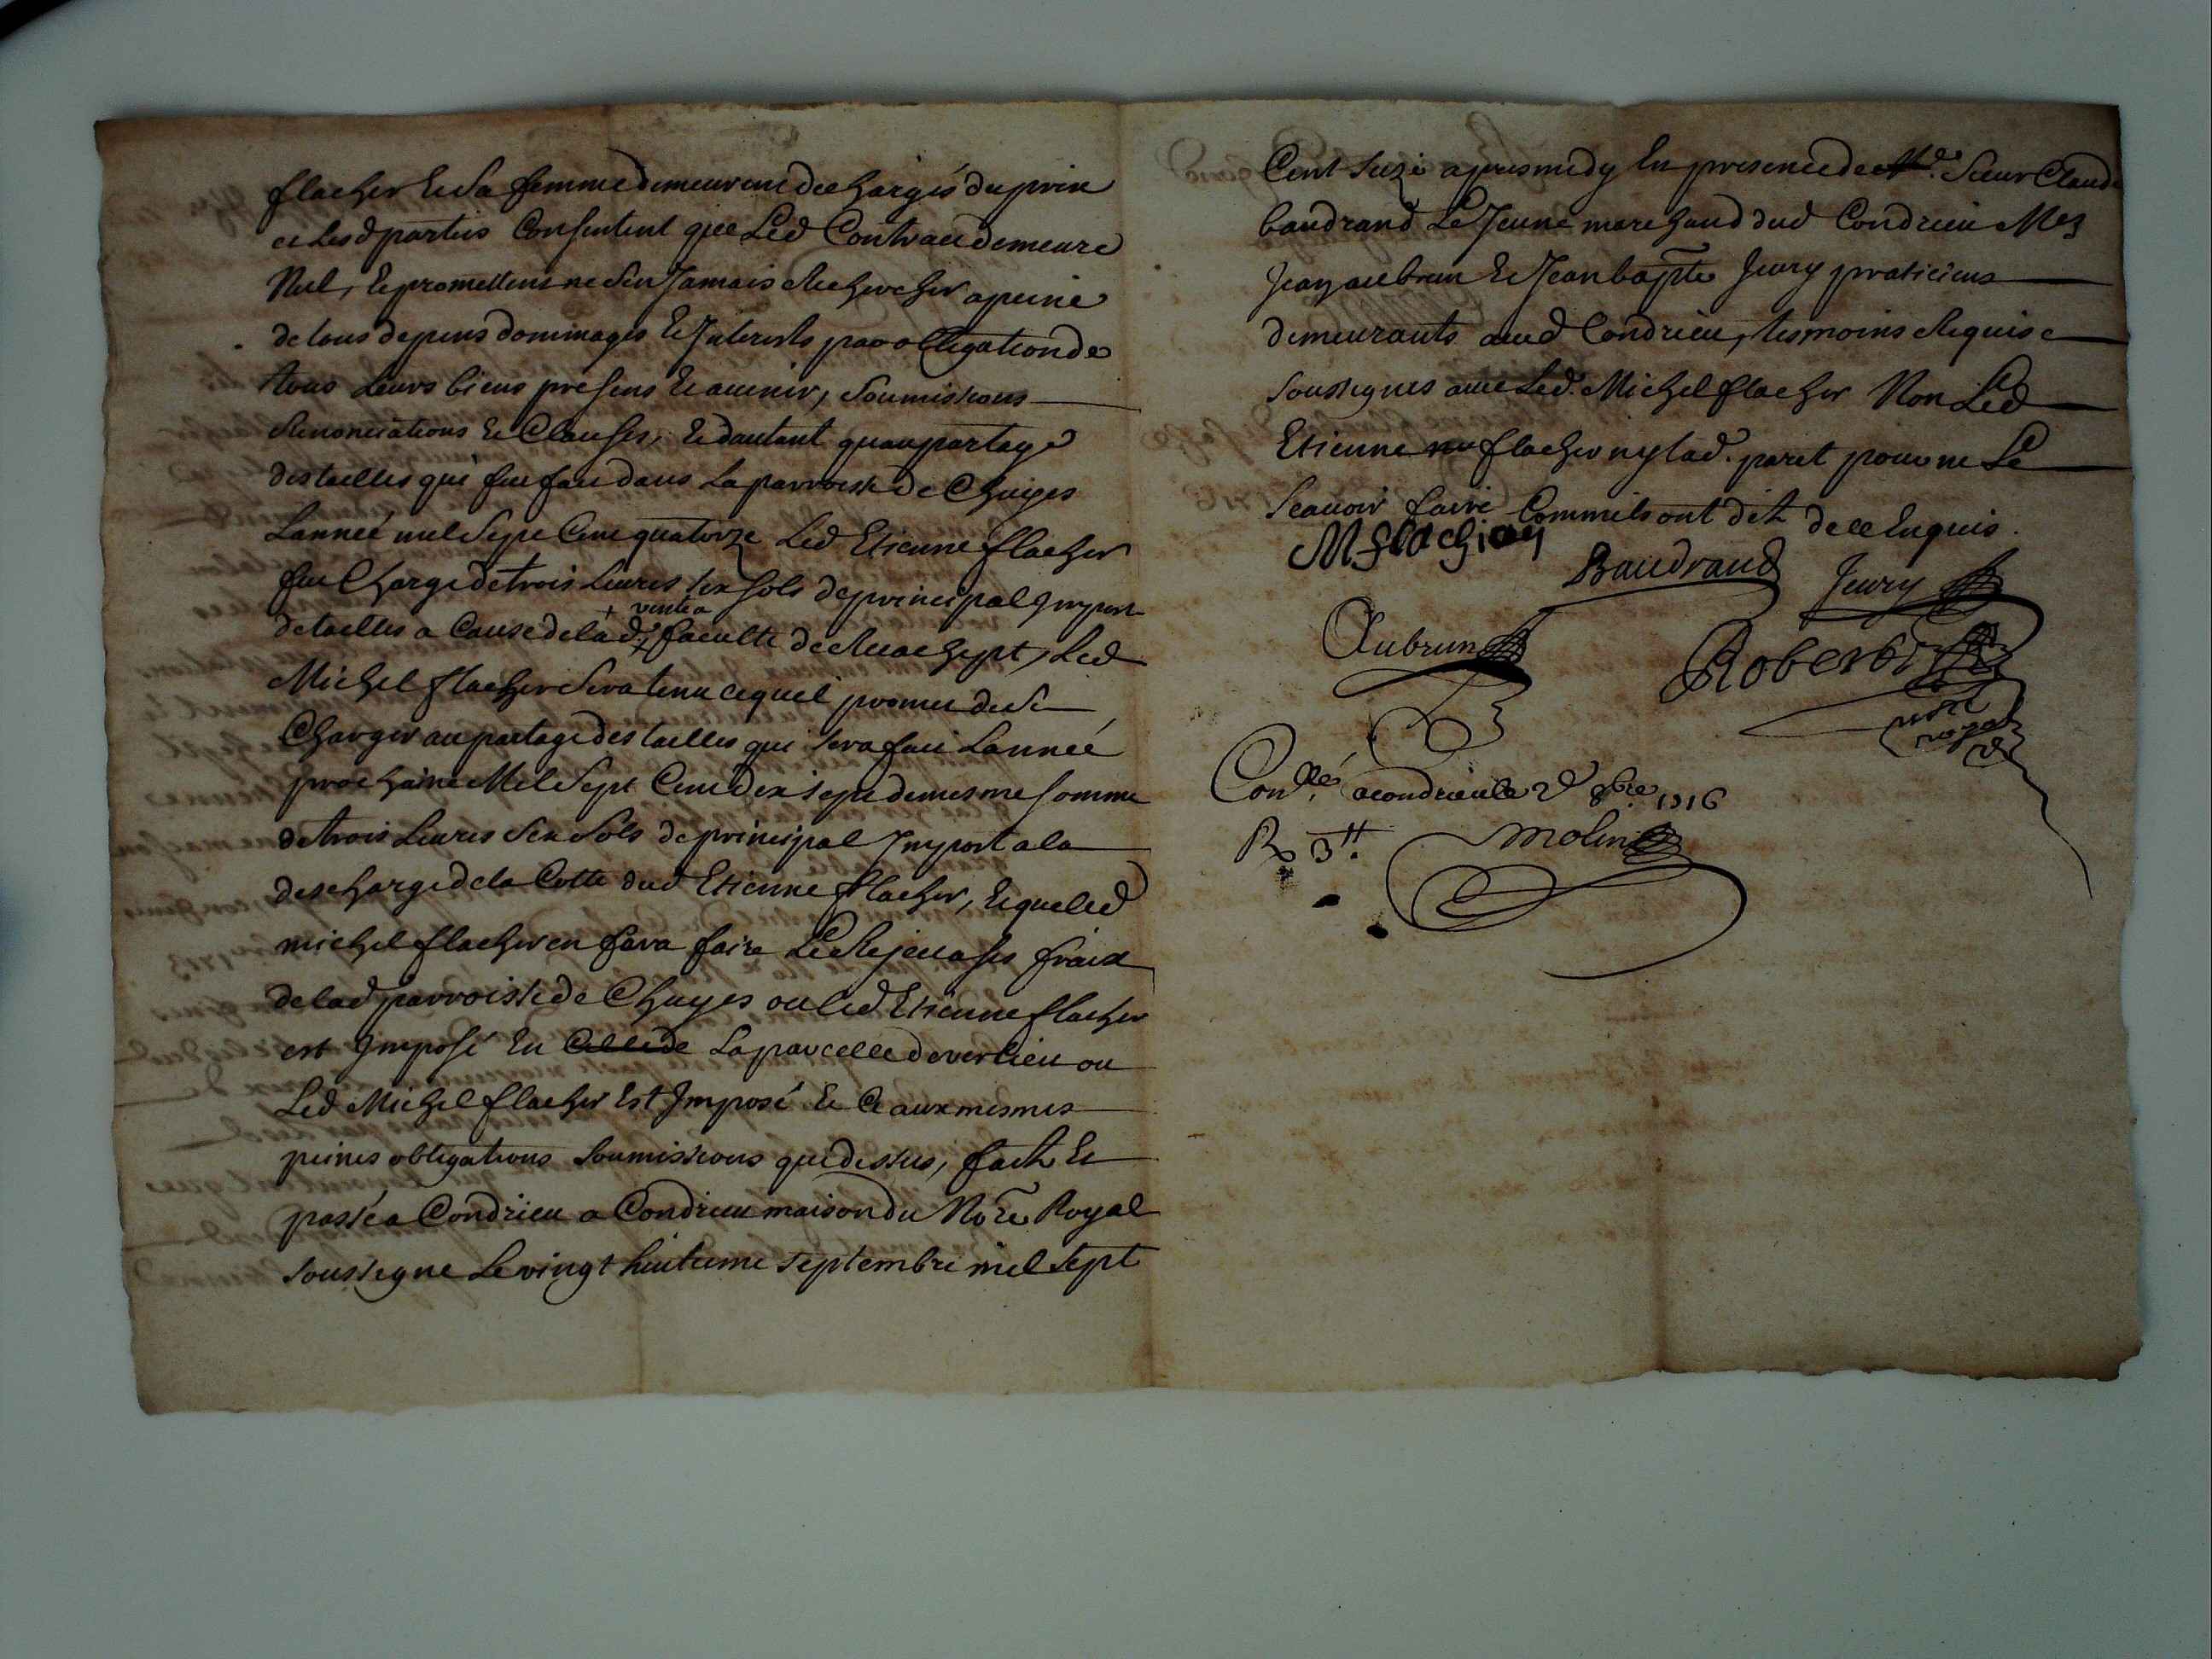 flacher Et Sa femme demeurent dechargés du prix
et Lesd parties Consentent que Led Contract demeure
Nul, Et promettent ne Sen Jamais Rechercher a peine
de tous depens dommages Et Interests par obligation de
tous Leurs biens presens Et auenir, Soumissions
Renonciations Et Clauses, Et dautant quau partage
des tailles qui fut fait dans La parroisse de Chuyes
Lanneé mil Sept Cent quatorze Led Etienne flacher
fut Chargé de trois Liures six sols de principal Import
de tailles a Cause de lad vente a faculté de Reachept, Led
Michel flacher Sera tenu ce quil promet de Se
Charger au partage des tailles qui sera fait Lanneé
prochaine Mil Sept Cent dix sept de mesme somme
de trois Liures Six Sols de principal Import a la
descharge de la Cotte dud Etienne flacher, Et que led
michel flacher en fera faire Le Rejet a ses fraix
de lad parroisse de Chuyes ou led Etienne flacher
est Imposé En La parcelle de verlieu ou
Led Michel flacher Est Imposé Et Ce aux mesmes
peines obligations Soumissions que dessus, fait Et
passé a Condrieu a Condrieu maison du Nore Royal
soussigne Le vingt huitieme septembre mil sept
Cent Seize apres midy En presence de Sieur Claude
baudrand Le Jeune marchand dud Condrieu Mes
Jean aubrun Et Jean bapte Jury praticiens
demeurants aud Condrieu, tesmoins Requis
soussignes auec Led. Michel flacher Non Led
Etienne flacher ny lad. paret pour ne Le
Scauoir faire Comme ils ont dit de ce Enquis.
M flachier
Baudrand Jury
Aubrun
Robert
nore
royal
Conllé a condrieu le 2e 8bre 1716
R 3 tt.
Molin